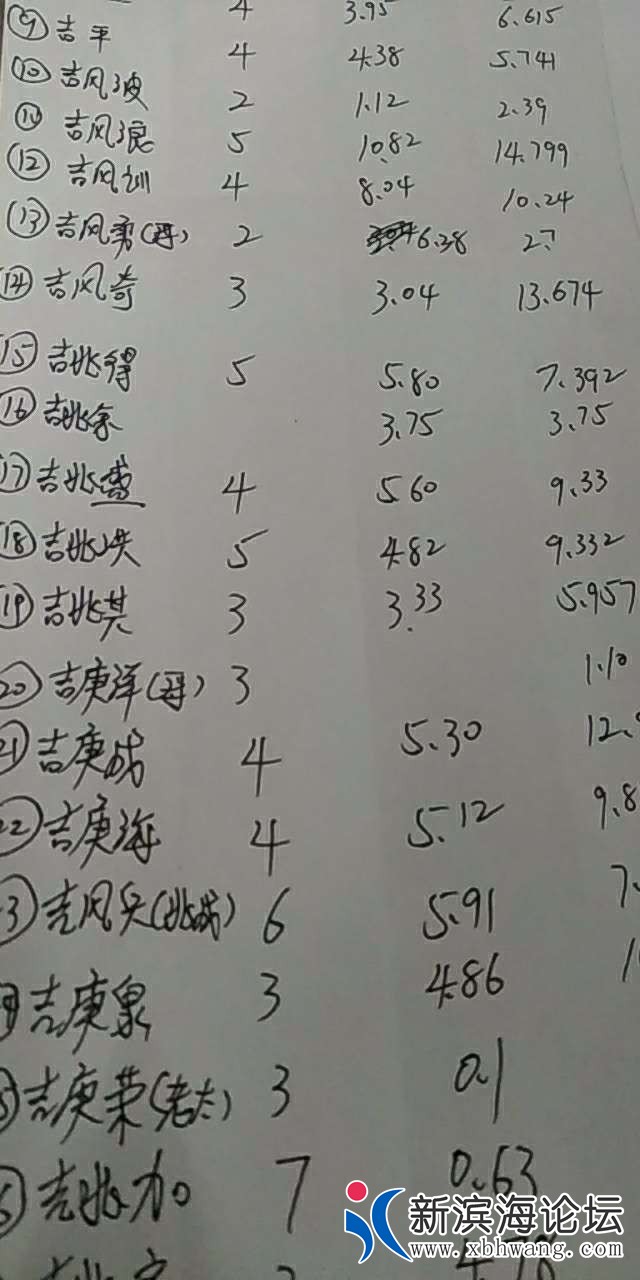 4 3.95 6.615
⑨ 吉平 4 4.38 5.741
⑩ 吉风波 2 1.12 2.39
⑪ 吉风浪 5 10.82 14.799
⑫ 吉风训 4 8.04 10.24
⑬ 吉风勇() 2 6.38 2.7
⑭ 吉风奇 3 3.04 13.674
⑮ 吉兆得 5 5.80 7.392
⑯ 吉兆余 3.75 3.75
⑰ 吉兆盛 4 5.60 9.33
⑱ 吉兆 5 4.82 9.332
⑲ 吉兆其 3 3.33 5.957
⑳ 吉庚洋() 3 1.10
21 吉庚成 4 5.30 12.
22 吉庚海 4 5.12 9.8
3 吉风兵(兆成) 6 5.91 7.
吉庚泉 3 4.86 1
5 吉庚荣(老太) 3 0.1
6 吉兆加 7 0.63
吉兆 4.78
新滨海论坛
www.xbhwang.com